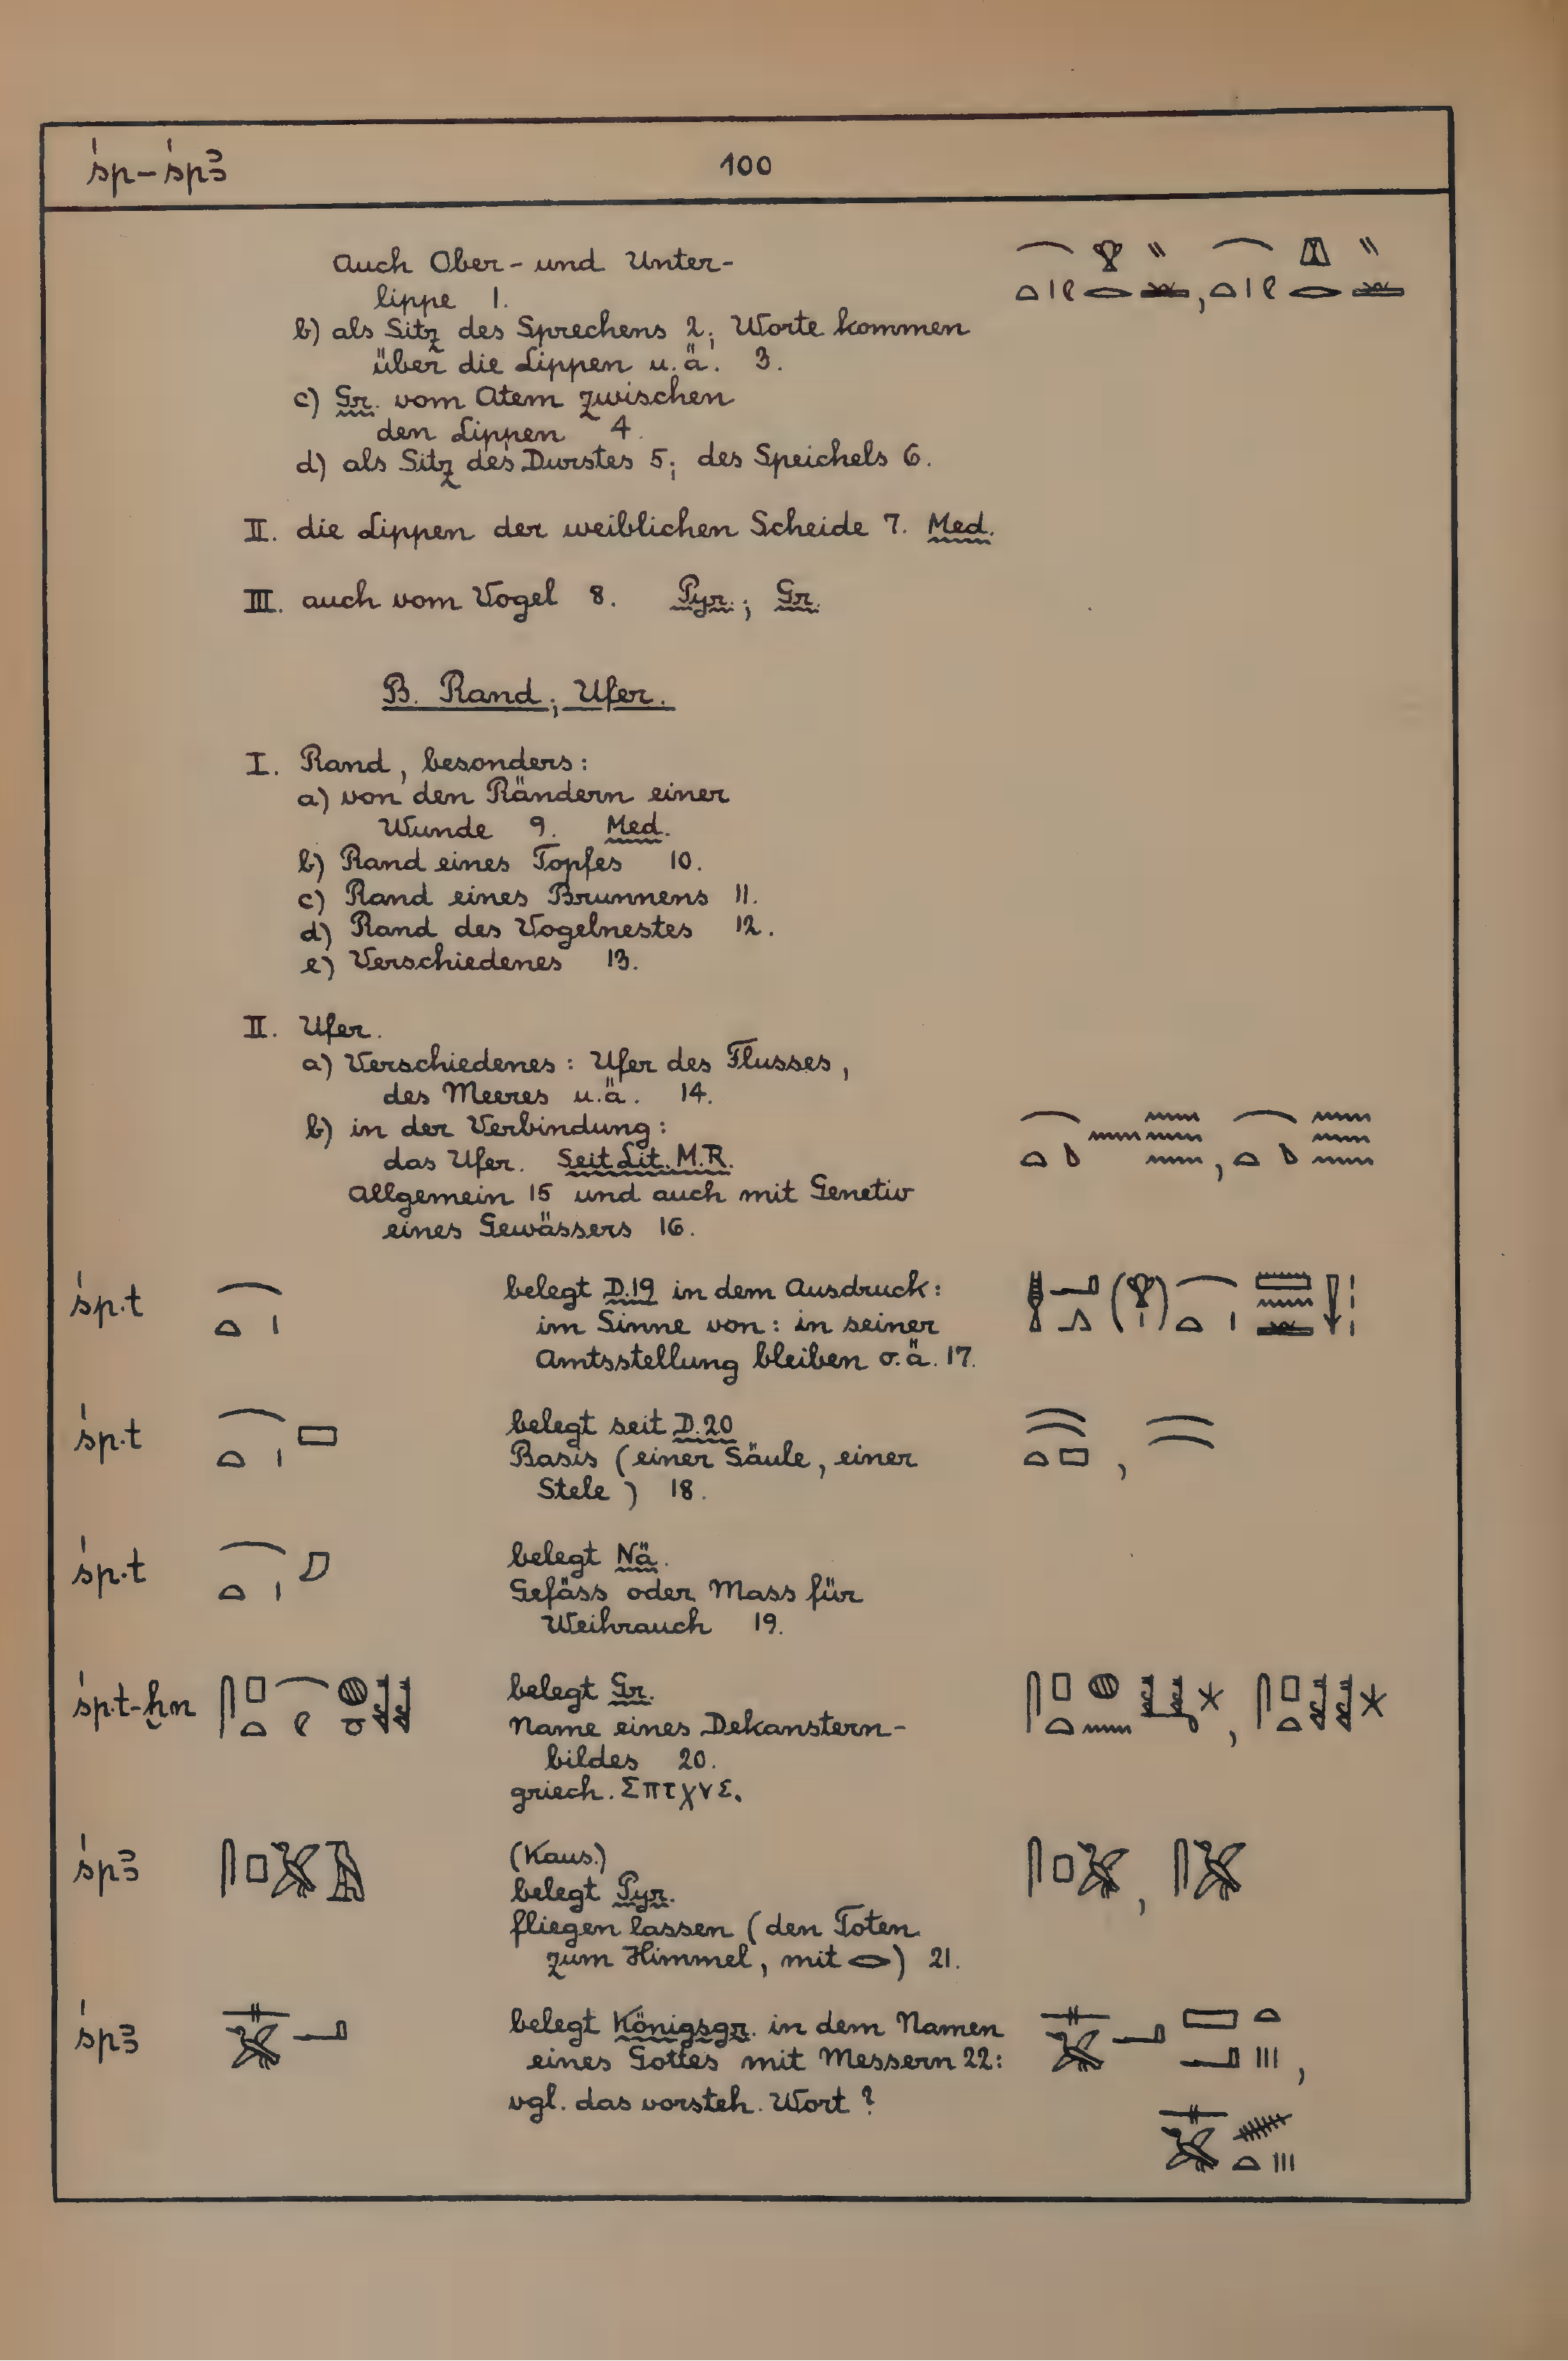 śp–śpꜣ 100
auch Ober- und Unter-
lippe 1.
b) als Sitz des Sprechens 2; Worte kommen
über die Lippen u.ä. 3.
c) Gr. vom Atem zwischen
den Lippen 4.
d) als Sitz des Durstes 5; des Speichels 6.
II. die Lippen der weiblichen Scheide 7. Med.
III. auch vom Vogel 8. Pyr.; Gr.
B. Rand; Ufer.
I. Rand, besonders:
a) von den Rändern einer
Wunde 9. Med.
b) Rand eines Topfes 10.
c) Rand eines Brunnens 11.
d) Rand des Vogelnestes 12.
e) Verschiedenes 13.
II. Ufer.
a) Verschiedenes: Ufer des Flusses,
des Meeres u.ä. 14.
b) in der Verbindung:
das Ufer. Seit Lit. M.R.
Allgemein 15 und auch mit Genetiv
eines Gewässers 16.
śp.t belegt D.19 in dem Ausdruck:
im Sinne von: in seiner
Amtsstellung bleiben o.ä. 17.
śp.t belegt seit D.20
Basis (einer Säule, einer
Stele) 18.
śp.t belegt Nä.
Gefäss oder Mass für
Weihrauch 19.
śp.t-ẖn belegt Gr.
Name eines Dekanstern-
bildes 20.
griech. Σπτχνε.
śpꜣ (Kaus.)
belegt Pyr.
fliegen lassen (den Toten
zum Himmel, mit 𓂋) 21.
śpꜣ belegt Königsgr. in dem Namen
eines Gottes mit Messern 22:
vgl. das vorsteh. Wort?